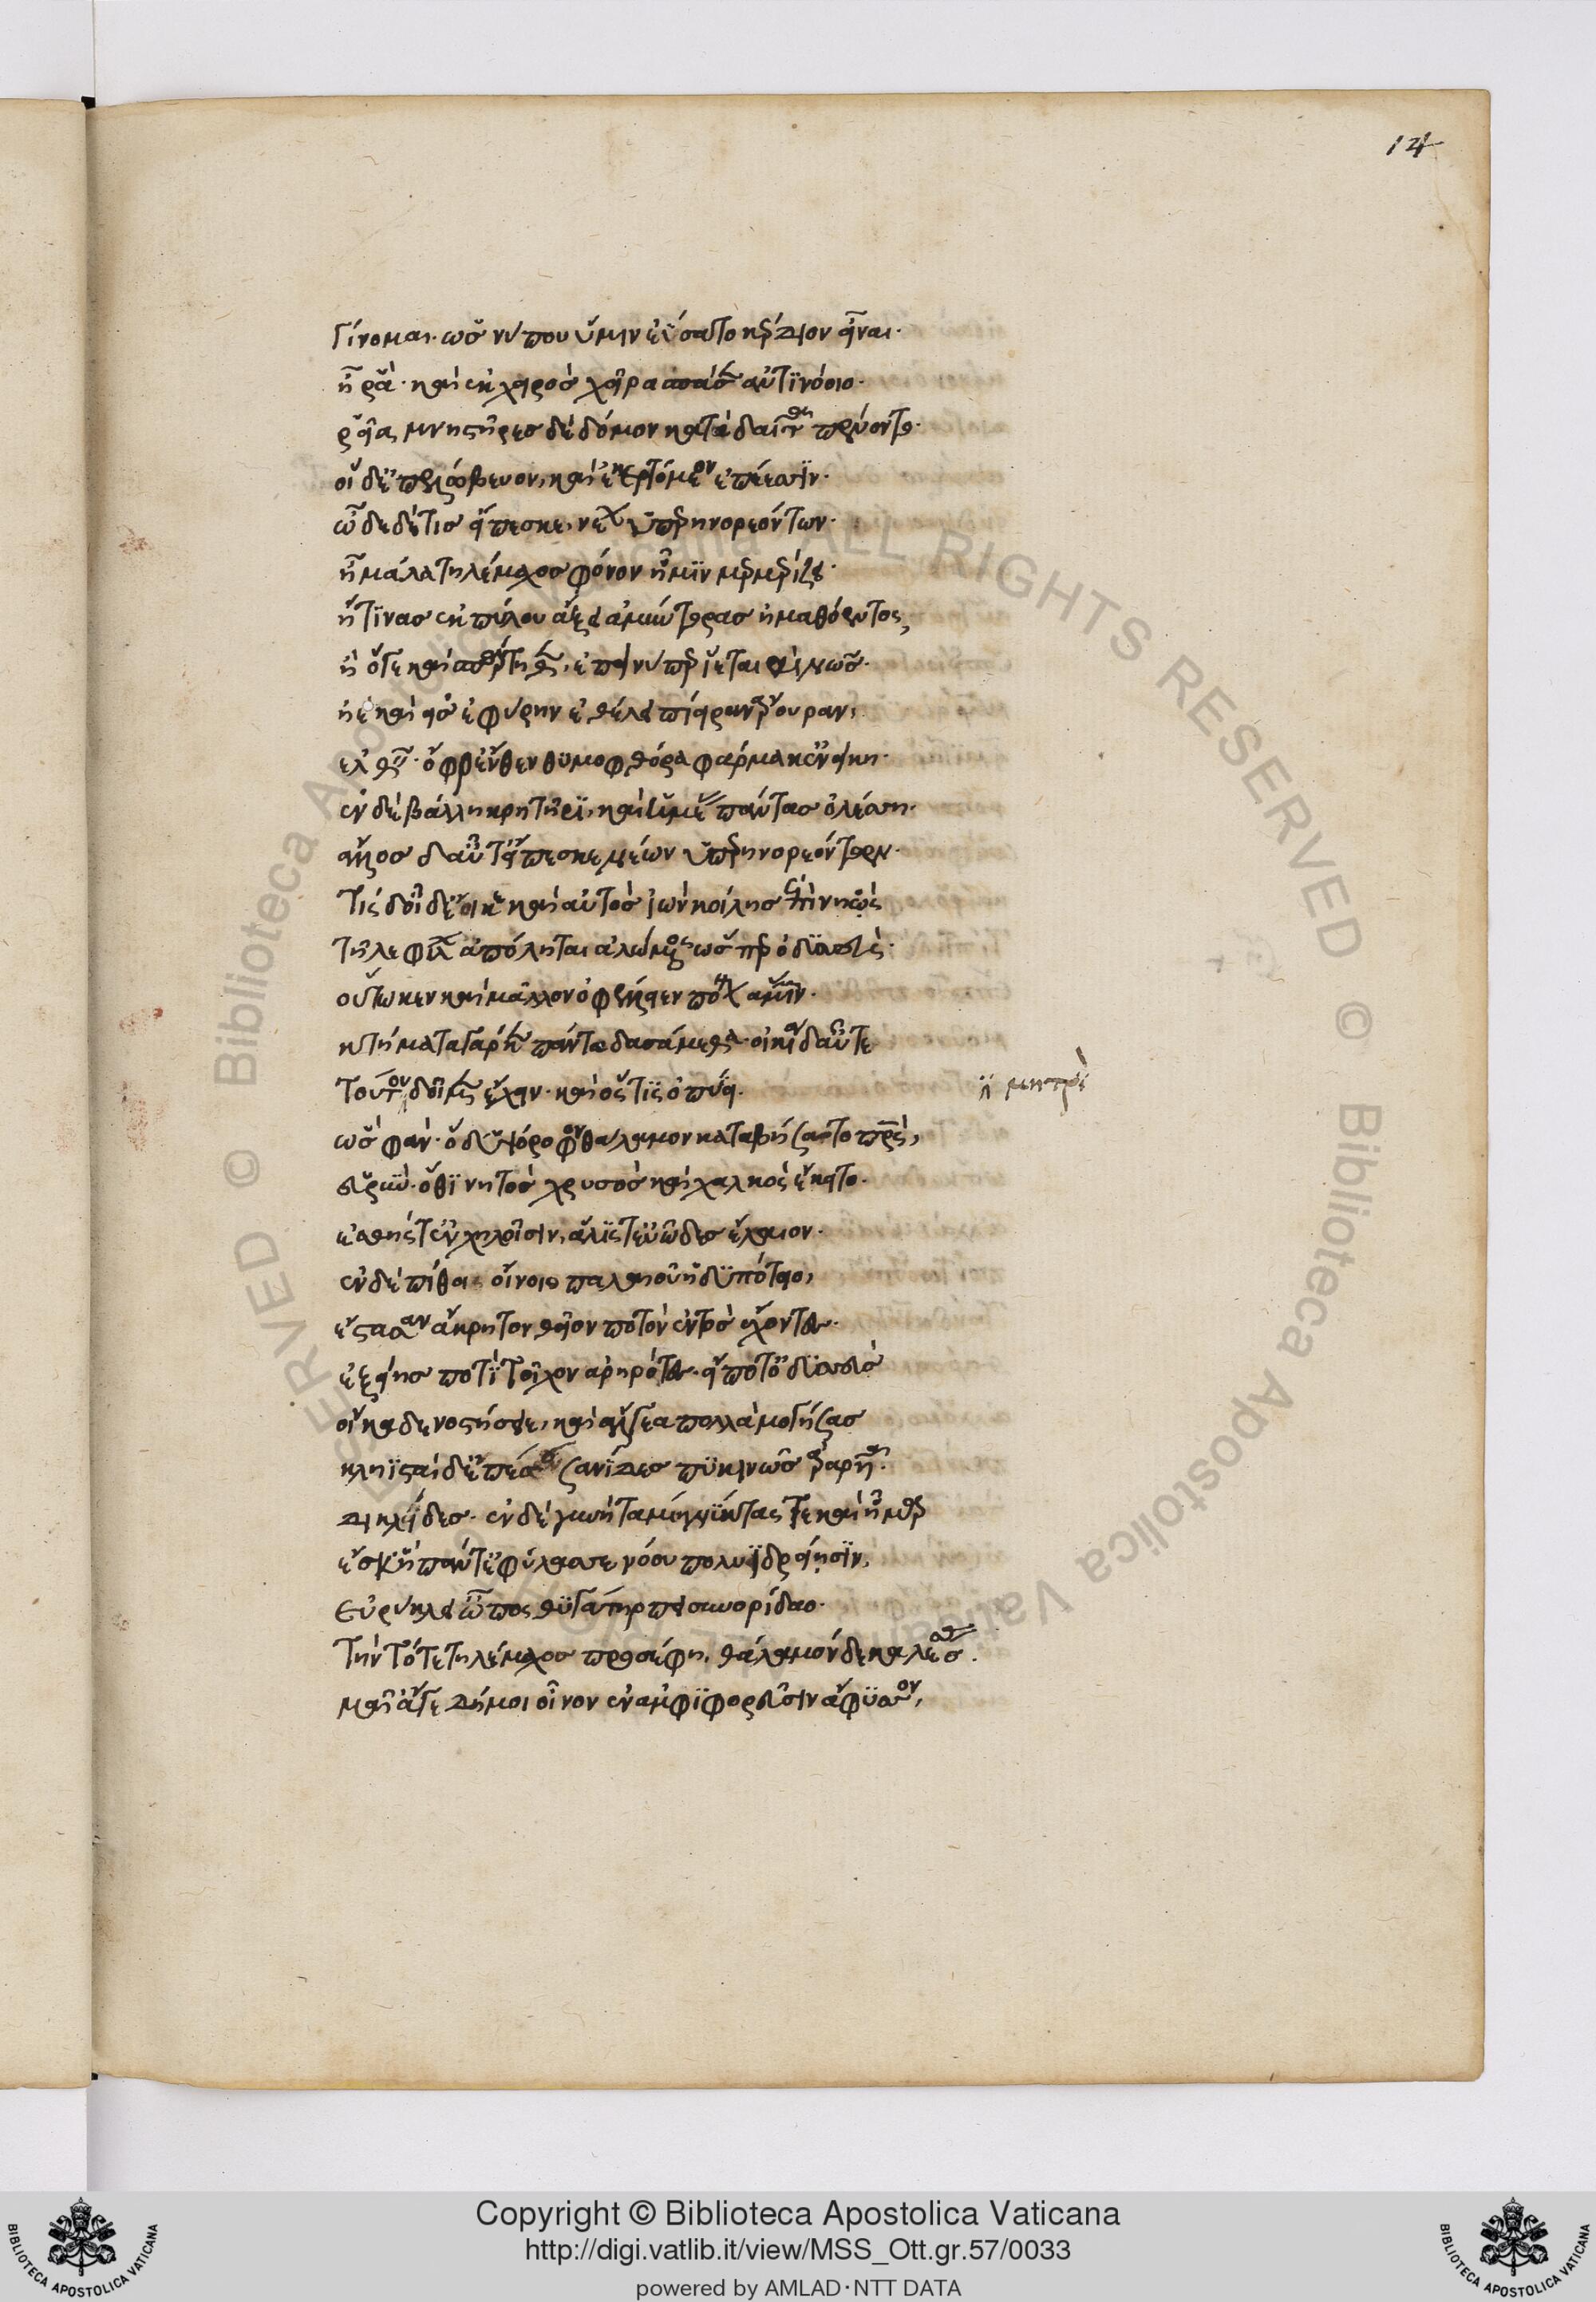 Γίνομαι. ὡς νύ που ὔμιν ἐΐσατο κέρδιον εἶναι.
ἦ ῥά. καὶ ἐκ χειρὸς χεῖρα σπάσατ' ἀντινόοιο.
ῥεῖα, μνηστῆρες δὲ δόμον κατὰ δαῖτα πένοντο.
οἳ δ' ἐπελώβευον, καὶ ἐκερτόμεον ἐπέεσσιν.
ὧδε δέ τις εἴπεσκε, νέων ὑπερηνορεόντων.
ἦ μάλα τηλέμαχος φόνον ἧμιν μερμηρίζει.
ἤ τινας ἐκ πύλου ἄξει ἀμύντορας ἠμαθόεντος,
ἢ ὅγε καὶ σπάρτηθεν, ἐπεί νυ περ ἵεται αἰνῶς.
ἠὲ καὶ εἰς ἐφύρην ἐθέλει πίειραν ἄρουραν,
ἐλθεῖν. ὄφρ' ἔνθεν θυμοφθόρα φάρμακ' ἐνείκη.
ἐν δὲ βάλλη κρητῆρι, καὶ ἡμέας πάντας ὀλέσση.
ἄλλος δ' αὖτ' εἴπεσκε νέων ὑπερηνορεόντων.
τίς δ' οἶδ' εἴ κε καὶ αὐτὸς ἰὼν κοίλης ἐπὶ νηὸς
τῆλε φίλων ἀπόληται ἀλώμενος ὥς περ ὀδυσσεύς.
οὕτω κεν καὶ μᾶλλον ὀφέλλειεν πόνον ἄμμιν.
κτήματα γάρ κεν πάντα δασάμεθα. οἰκία δ' αὖτε
τούτου δοῖμεν ἔχειν. καὶ ὅς τις ὀπύει.
ἢ μητρὶ
ὣς φάν. ὁ δ' ὑψόροφον θάλαμον καταβήσαντο πατρὸς,
εὐρὺν. ὅθι νητὸς χρυσὸς καὶ χαλκὸς ἔκειτο.
ἐσθής τ' ἐν χηλοῖσιν, ἅλις τ' εὐῶδες ἔλαιον.
ἐν δὲ πίθοι οἴνοιο παλαιοῦ ἡδυπότοιο,
ἕστασαν ἄκρητον θεῖον ποτὸν ἐντὸς ἔχοντες.
ἑξείης ποτὶ τοῖχον ἀρηρότες. εἴ ποτ' ὀδυσσεὺς
οἴκαδε νοστήσειε, καὶ ἄλγεα πολλὰ μογήσας
κληϊσταὶ δ' ἔπεσαν σανίδες πυκινῶς ἀραρυῖαι.
δικλίδες. ἐν δὲ γυνὴ ταμίη νύκτας τε καὶ ἦμαρ
ἔσχ' ἣ πάντ' ἐφύλασσε νόου πολυϊδρείησιν,
Εὐρύκλει' ὦπος θυγάτηρ πεισηνορίδαο.
τὴν τότε τηλέμαχος προσέφη, θάλαμόνδε καλέσσας.
μαῖ' ἄγε δή μοι οἶνον ἐν ἀμφιφορεῦσιν ἄφυσσον,
14
Copyright © Biblioteca Apostolica Vaticana
http://digi.vatlib.it/view/MSS_Ott.gr.57/0033
powered by AMLAD·NTT DATA